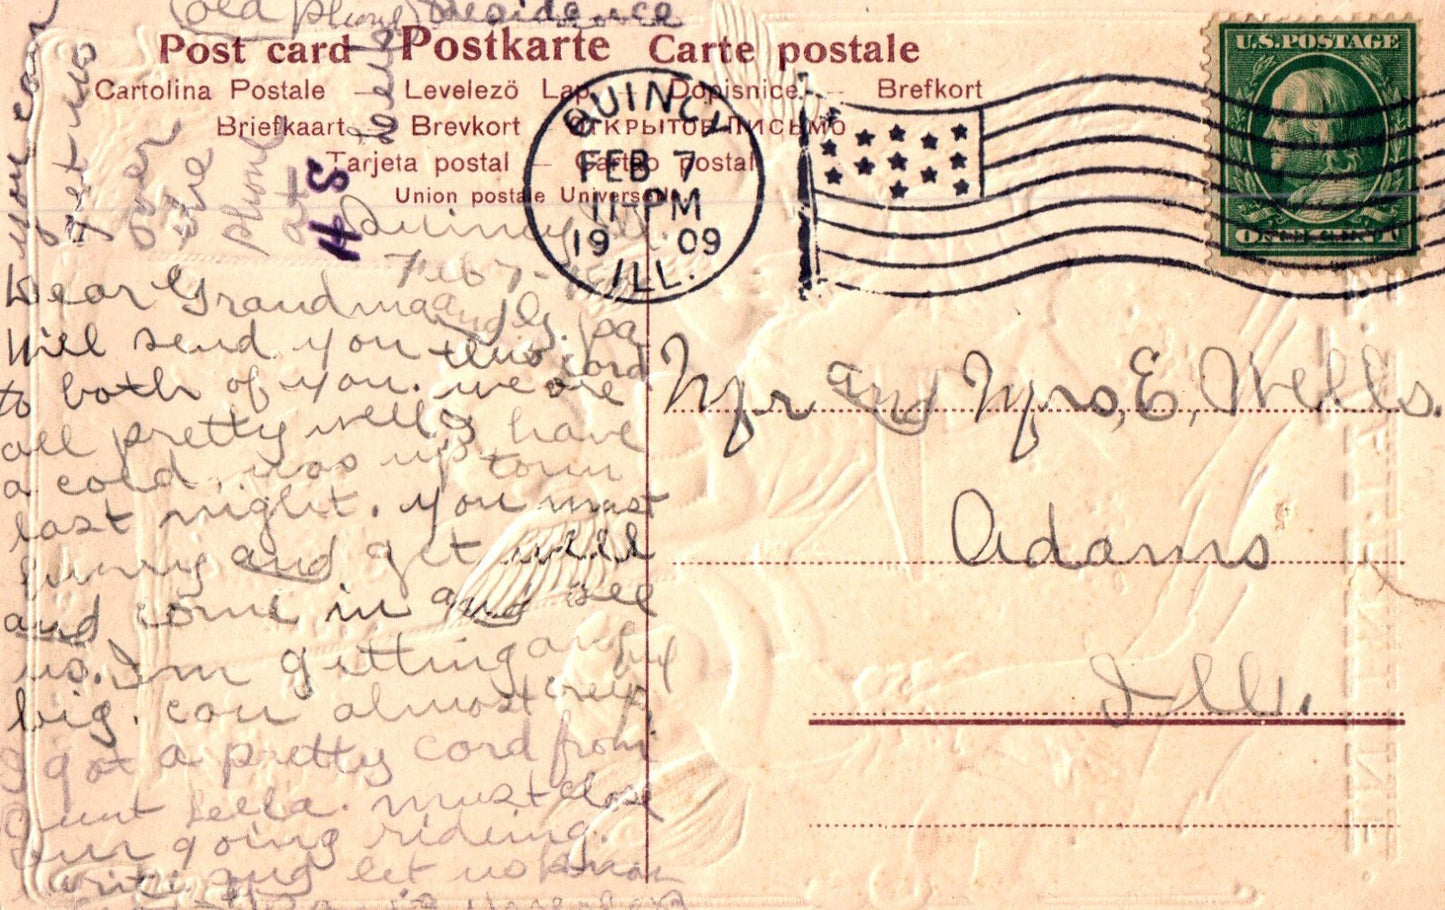 (Old Phone) Residence
Post card Postkarte Carte postale
Cartolina Postale — Levelező Lap — Dopisnice — Brefkort
Briefkaart — Brevkort — ОТКРЫТОЕ ПИСЬМО
Tarjeta postal — Cartão postal
Union postale Universelle
QUINCY
FEB 7
11 PM
1909
ILL.
U.S. POSTAGE
ONE CENT
you can
get us
over
the
phone
at
4S
Wells
Quincy Ill.
Feb 7-
Dear Grandma and G. pa
Will send you this card
to both of you. we are
all pretty well. I have
a cold. was up town
last night. you must
hurry and get well
and come in and see
us. Im getting awful
big. can almost creep
I got a pretty card from
Aunt Lella. must close
Our going riding.
write and let us know
Mr and Mrs, E, Wells.
Adams
Ill.
VALENTINE